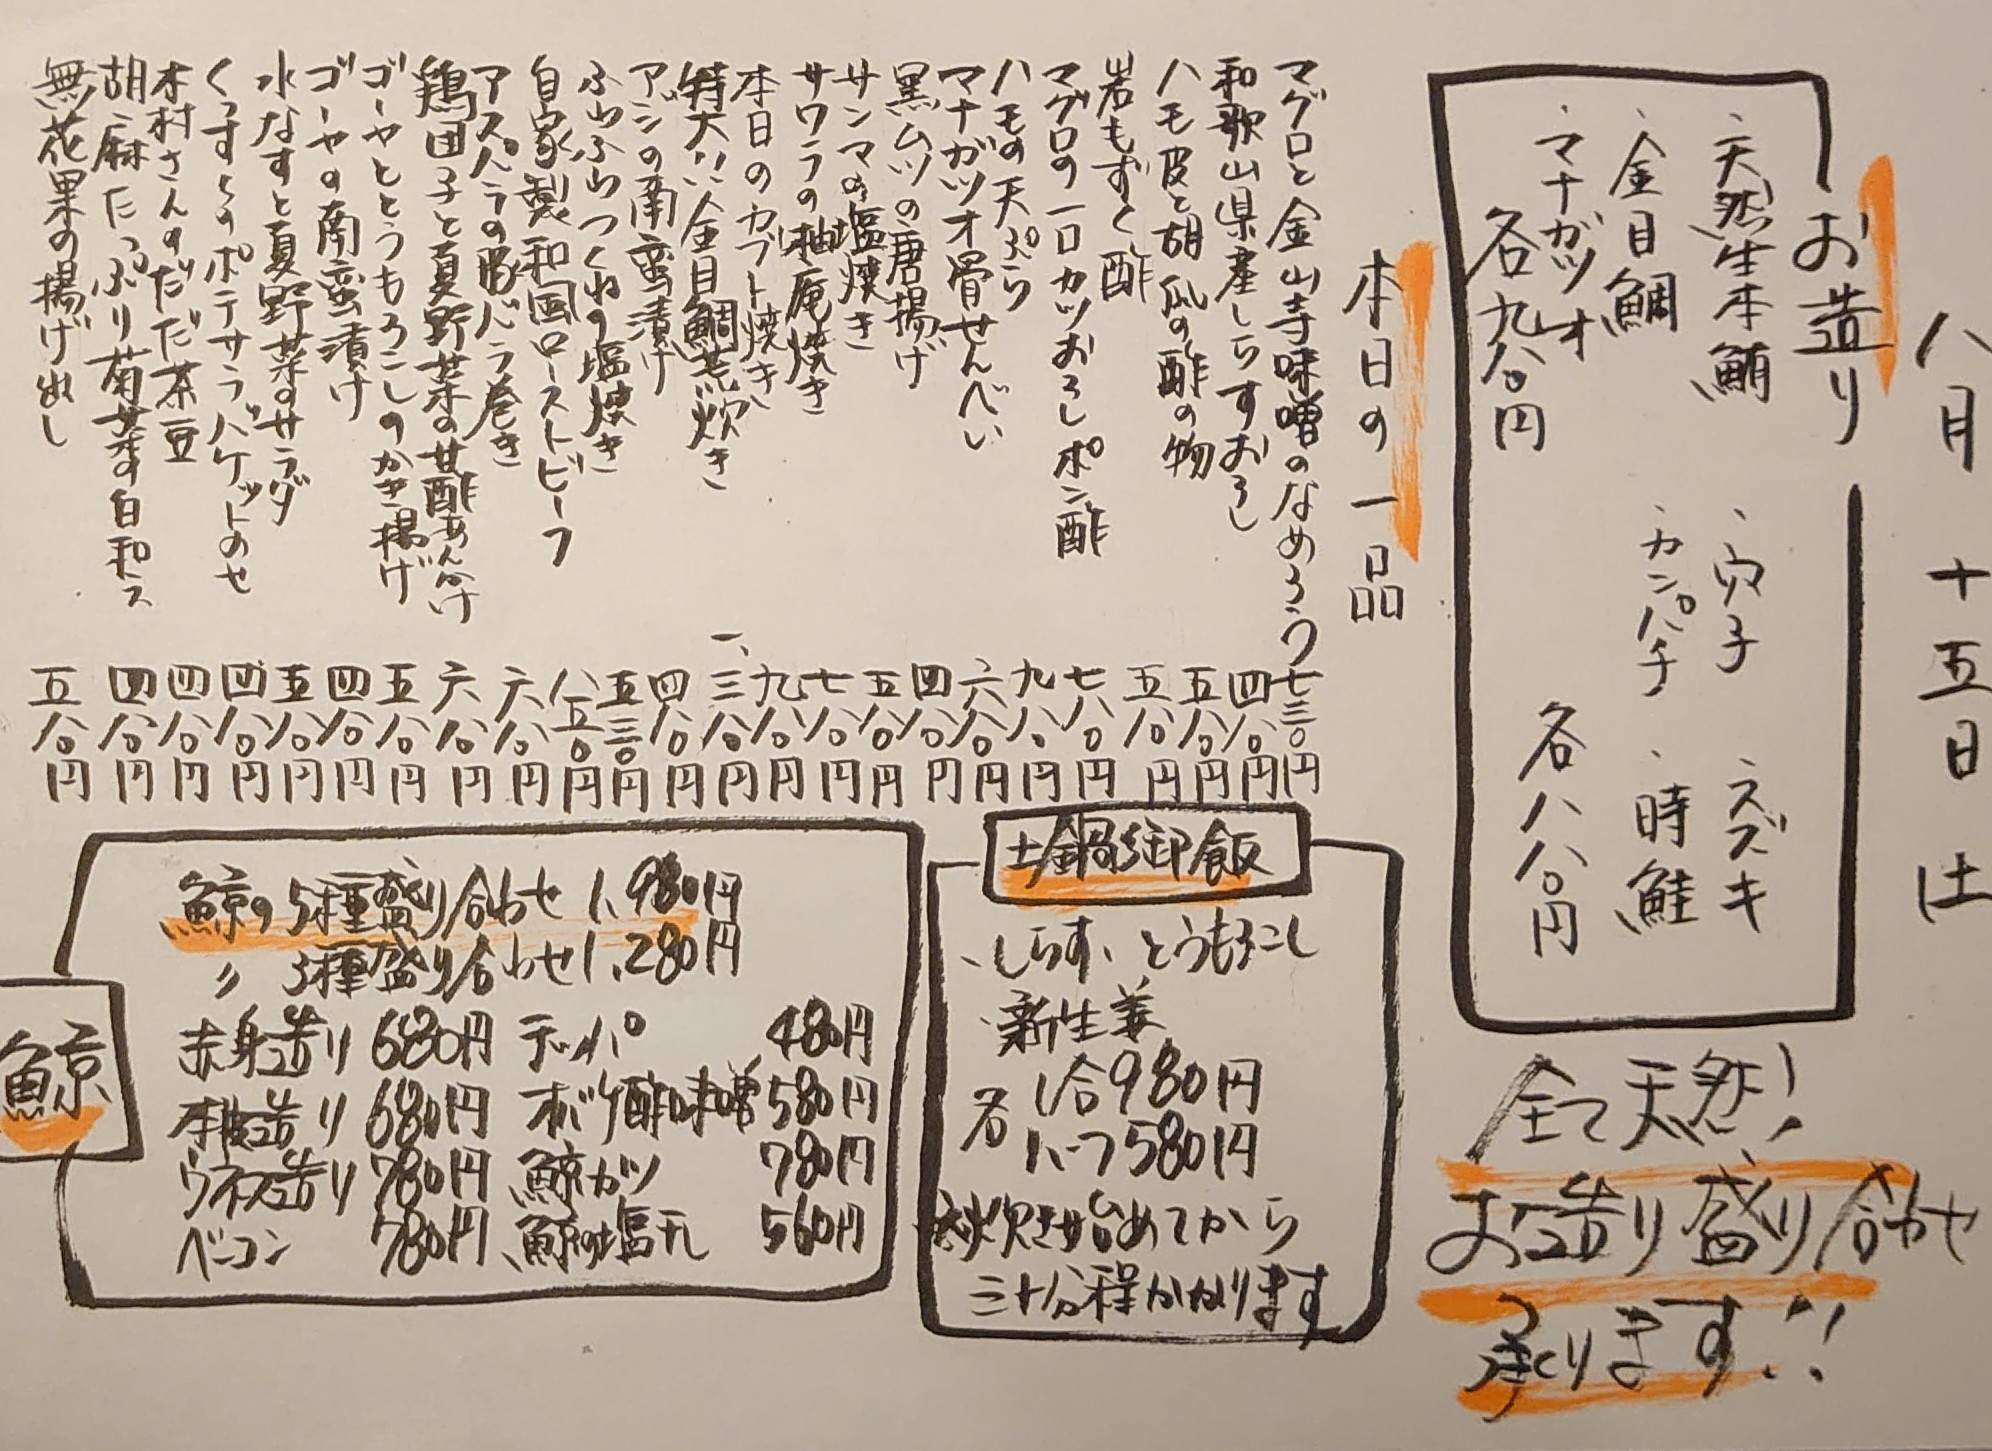 八月十五日 土
お造り
・天然生本鮪
・金目鯛
・マナガツオ
各九八〇円
・穴子
・カンパチ
・スズキ
・時鮭
各八八〇円
全て天然!
お造り盛り合わせ
承ります!!
本日の一品
マグロと金山寺味噌のなめろう 七三〇円
和歌山県産しらすおろし 四八〇円
ハモ皮と胡瓜の酢の物 五八〇円
岩もずく酢 五八〇円
マグロの一口カツおろしポン酢 七八〇円
ハモの天ぷら 九八〇円
マナガツオ骨せんべい 六八〇円
黒ムツの唐揚げ 四八〇円
サンマの塩焼き 五八〇円
サワラの柚庵焼き 七八〇円
本日のカブト焼き 九八〇円
特大!!金目鯛荒炊き 一、三八〇円
アジの南蛮漬け 四八〇円
ふわふわつくねの塩焼き 五三〇円
自家製和風ローストビーフ 八五〇円
アスパラの豚バラ巻き 六八〇円
鶏団子と夏野菜の甘酢あんかけ 六八〇円
ゴーヤととうもろこしのかき揚げ 五八〇円
ゴーヤの南蛮漬け 四八〇円
水なすと夏野菜のサラダ 五八〇円
くんすとのポテサラバケットのせ 四八〇円
木村さんのだだ茶豆 四八〇円
胡麻たっぷり菊菜の白和え 四八〇円
無花果の揚げ出し 五八〇円
土鍋御飯
・しらす、とうもろこし
・新生姜
各 1合980円
ハーフ580円
※炊き始めてから
三十分程かかります
鯨
鯨の5種盛り合わせ 1,980円
〃 3種盛り合わせ 1,280円
赤身造り 680円 テッパ 480円
本皮造り 680円 オバケ酢味噌 580円
ウネス造り 780円 鯨カツ 780円
ベーコン 780円 鯨の塩干し 560円